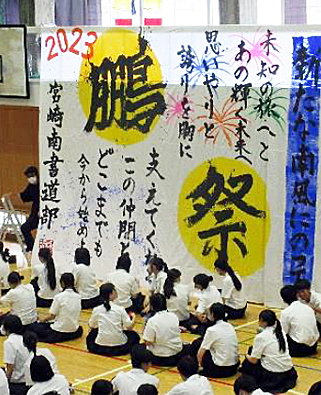 新たな南風にのって
未知の旅へと
あの輝く未来へ
思いやりと
誇りを胸に
鵬
祭
支えてくれ
この仲間と
どこまでも
今から始めよ
宮崎南書道部
2023